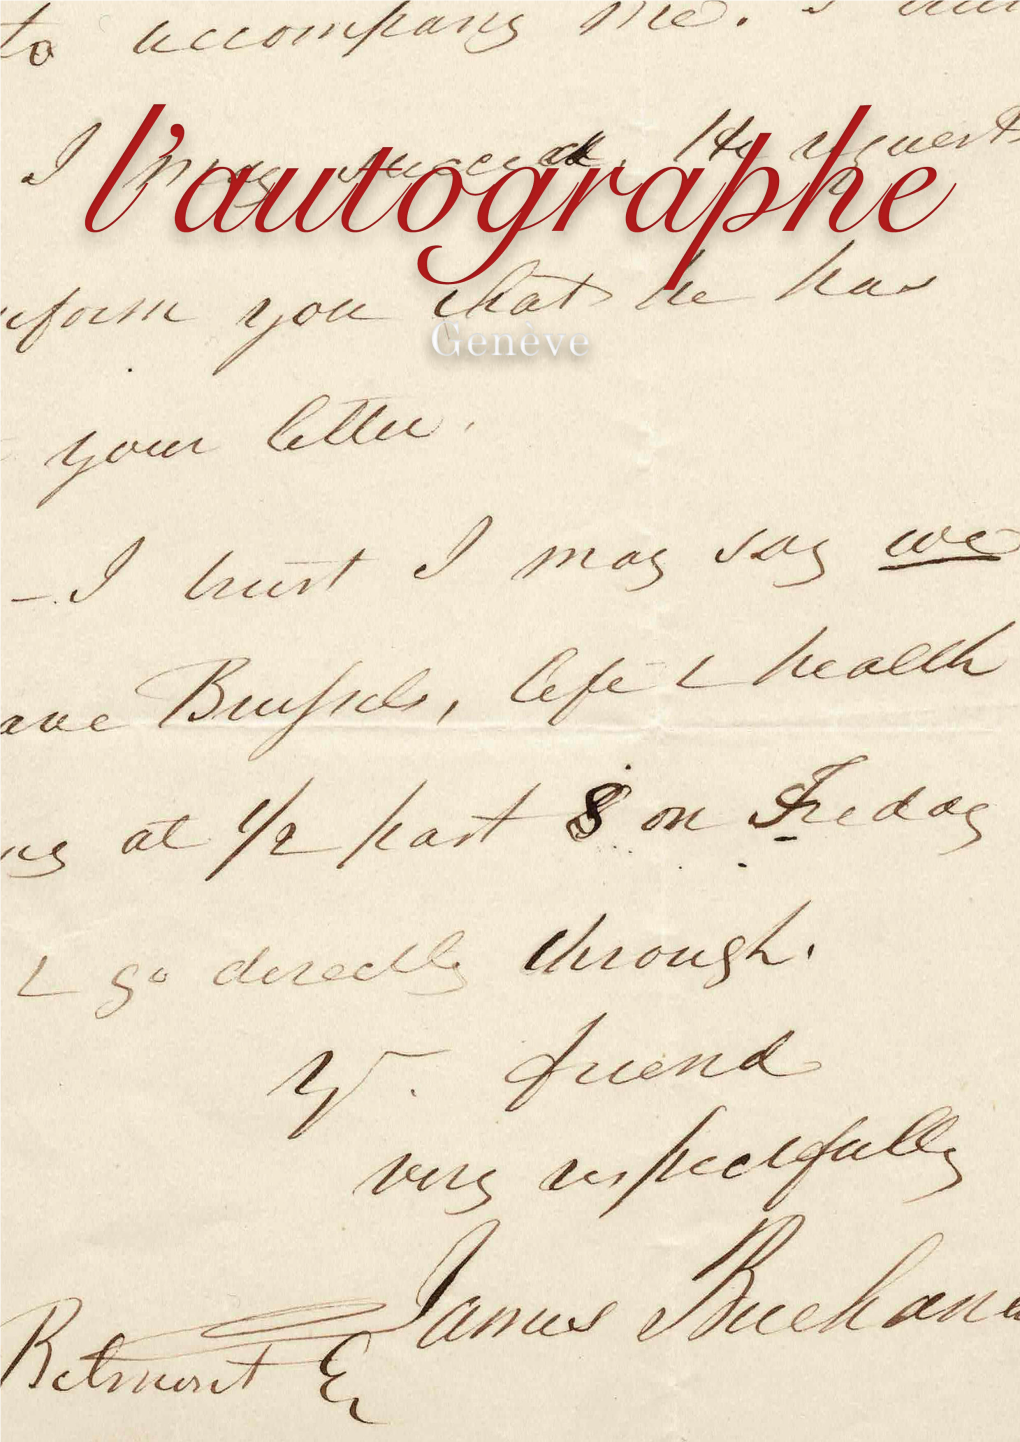 to accompany me. I
I may succeed. He requests
l'autographe
inform you that he has
Genève
your letter.
– I trust I may say we
ave Brussels, life & health
ng at 1/2 past 8 on Friday
& go directly through.
Yr. friend
very respectfully
James Buchana
Belmont Er